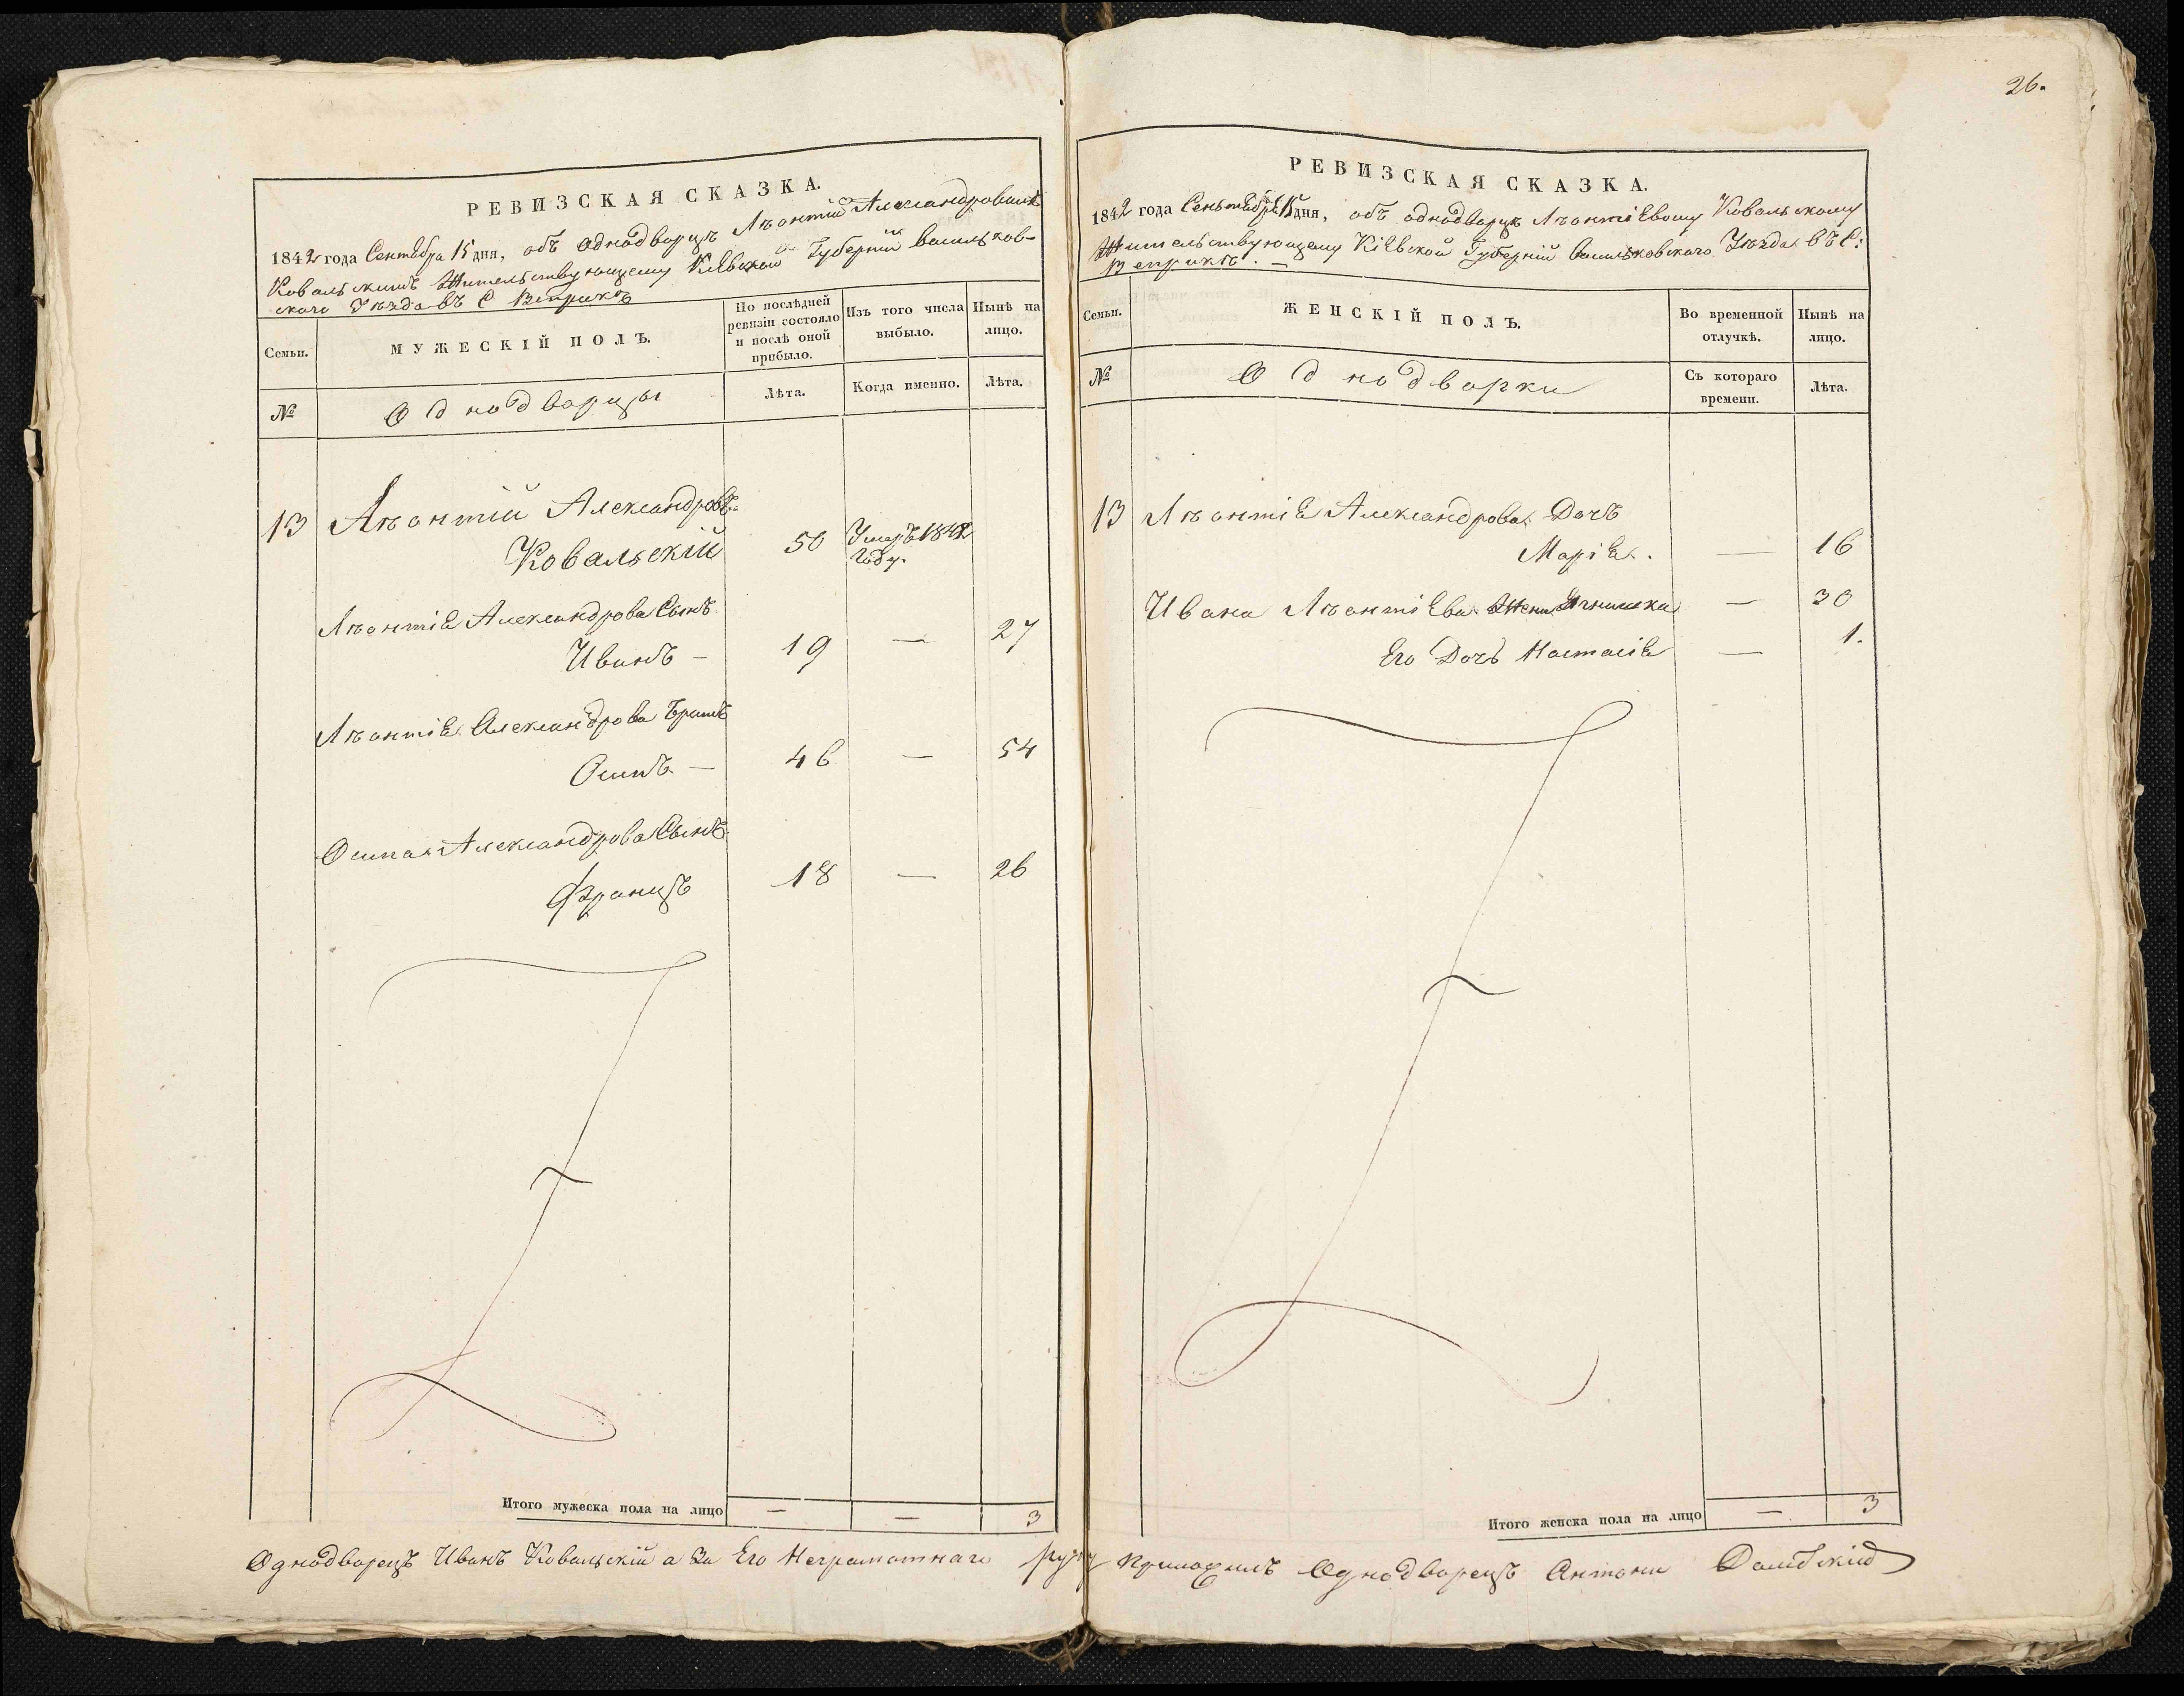 26.
РЕВИЗСКАЯ СКАЗКА.
1842 года Сентебра 15 дня, объ однодворцѣ Лѣонтій Александровимъ
Ковальскимъ Жительствующему Кіевской Губерній Васильков-
ского Уѣзда въ С Веприкѣ
Семьи.
МУЖЕСКІЙ ПОЛЪ.
По послѣдней ревизіи состояло и послѣ оной прибыло.
Изъ того числа выбыло.
Нынѣ на лицо.
№
Однодворцы
Лѣта.
Когда именно.
Лѣта.
13 Лѣонтій Александровъ
Ковальскій 50 Умеръ 1842
Году.
Лѣонтіе Александрова Сынъ
Иванъ — 19 — 27
Лѣонтіе Александрова Братъ
Осипъ — 46 — 54
Осипа Александрова Сынъ
Францъ 18 — 26
Итого мужеска пола на лицо — — 3
РЕВИЗСКАЯ СКАЗКА.
1842 года Сеньтебра 15 дня, объ однодворцѣ Лѣонтіевому Ковальскому
Жительствующему Кіевской Губерній Васильковского Уѣзда въ С:
Веприкѣ. —
Семьи.
ЖЕНСКІЙ ПОЛЪ.
Во временной отлучкѣ.
Нынѣ на лицо.
№
Однодворки
Съ котораго времени.
Лѣта.
13 Лѣонтіе Александрова Дочъ
Маріе. — 16
Ивана Лѣонтіева Жена — 30
Его Дочъ Настасіе — 1.
Итого женска пола на лицо — 3
Однодворецъ Иванъ Ковальскій а За Его Неграмотнаго руку приложилъ Однодворецъ Антони